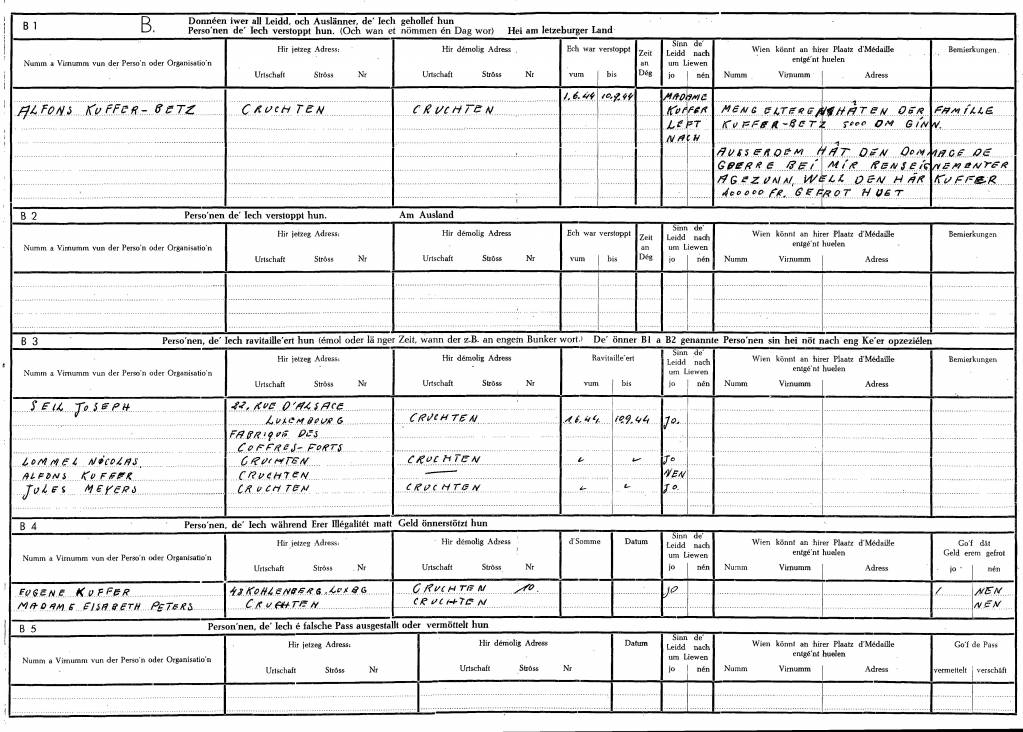 B 1 B. Donnéen iwer all Leidd, och Auslänner, de' Iech gehollef hun
Perso'nen de' Iech verstoppt hun. (Och wan et nömmen én Dag wor) Hei am letzeburger Land
Numm a Virnumm vun der Perso'n oder Organisatio'n
Hir jetzeg Adress:
Urtschaft Ströss Nr
Hir démolig Adress:
Urtschaft Ströss Nr
Ech war verstoppt
vum bis
Zeit
an
Dég
Sinn de'
Leidd nach
um Liewen
jo nén
Wien könnt an hirer Plaatz d'Médaille
entgé'nt huelen
Numm Virnumm Adress
Bemierkungen
ALFONS KUFFER-BETZ CRUCHTEN CRUCHTEN 1.6.44 10.9.44
MADAME
KUFFER
LEFT
NACH
MENG ELTEREN HÄTEN DER FAMILLE
KUFFER-BETZ 5000 DM GINN.
AUSSERDEM HÄT DEN DOMMAGE DE
GUERRE BEI MIR RENSEIGNEMENTER
AGEZUNN, WELL DEN HÄR KUFFER
400000 FR. GEFROT HUET
B 2 Perso'nen de' Iech verstoppt hun. Am Ausland
Numm a Virnumm vun der Perso'n oder Organisatio'n
Hir jetzeg Adress:
Urtschaft Ströss Nr
Hir démolig Adress
Urtschaft Ströss Nr
Ech war verstoppt
vum bis
Zeit
an
Dég
Sinn de'
Leidd nach
um Liewen
jo nén
Wien könnt an hirer Plaatz d'Médaille
entgé'nt huelen
Numm Virnumm Adress
Bemierkungen
B 3 Perso'nen, de' Iech ravitaille'ert hun (émol oder lä nger Zeit, wann der z.B. an engem Bunker wort.) De' önner B1 a B2 genannte Perso'nen sin hei nöt nach eng Ke'er opzeziélen
Numm a Virnumm vun der Perso'n oder Organisatio'n
Hir jetzeg Adress:
Urtschaft Ströss Nr
Hir démolig Adress
Urtschaft Ströss Nr
Ravitaille'ert
vum bis
Sinn de'
Leidd nach
um Liewen
jo nén
Wien könnt an hirer Plaatz d'Médaille
entgé'nt huelen
Numm Virnumm Adress
Bemierkungen
SEIL JOSEPH 22, RUE D'ALSACE
LUXEMBOURG CRUCHTEN 1.6.44. 10.9.44 JO.
FABRIQUE DES
COFFRES-FORTS
LOMMEL NICOLAS. CRUCHTEN CRUCHTEN JO
ALFONS KUFFER CRUCHTEN NEN
JULES MEYERS CRUCHTEN CRUCHTEN JO.
B 4 Perso'nen, de' Iech während Erer Illégalitét matt Geld önnerstötzt hun
Numm a Virnumm vun der Perso'n oder Organisatio'n
Hir jetzeg Adress:
Urtschaft Ströss Nr
Hir démolig Adress
Urtschaft Ströss Nr
d'Somme
Datum
Sinn de'
Leidd nach
um Liewen
jo nén
Wien könnt an hirer Plaatz d'Médaille
entgé'nt huelen
Numm Virnumm Adress
Go'f dät
Geld erem gefrot
jo nén
EUGENE KUFFER 48 KOHLENBERG. LUXBG CRUCHTEN 10. JO / NEN
MADAME ELSABETH PETERS CRUCHTEN CRUCHTEN NEN
B 5 Person'nen, de' Iech é falsche Pass ausgestallt oder vermöttelt hun
Numm a Virnumm vun der Perso'n oder Organisatio'n
Hir jetzeg Adress:
Urtschaft Ströss Nr
Hir démolig Adress:
Urtschaft Ströss Nr
Datum
Sinn de'
Leidd nach
um Liewen
jo nén
Wien könnt an hirer Plaatz d'Médaille
entgé'nt huelen
Numm Virnumm Adress
Go'f de Pass
vermettelt verschäft